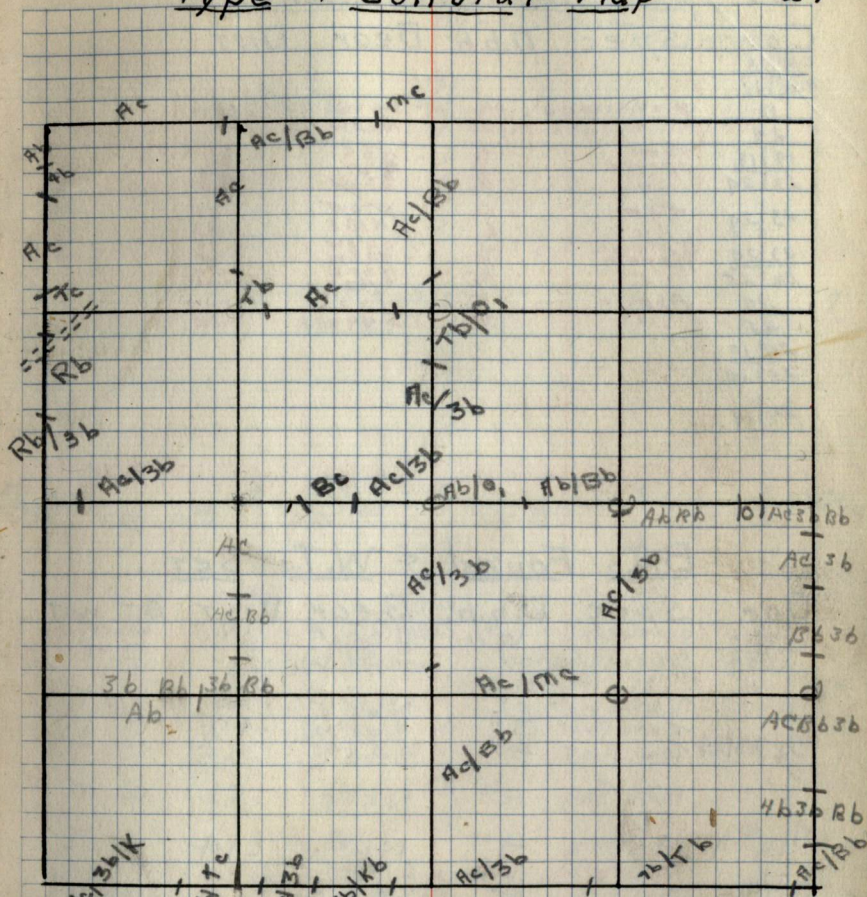 Type + Editorial Map
Ac
mc
Ac/Bb
Ab
Ab
Ac
Ac/Bb
Ac
Tc
Tb
Ac
Tb/O,
Rb
Ac/3b
Rb/3b
Ac/3b
Bc
Ac/3b
Ab/O,
Ab/Bb
AbRb
b
Ac3bBb
Ac
Ac/3b
Ac/3b
Ac 3b
AcBb
Bb3b
3b Bb
3b Bb
Ab
Ac/mc
ACBb3b
Ac/Bb
4b3b Bb
/3b/K
Tc
/3b
/Kb
Ac/3b
/Tb
Ac/Bb